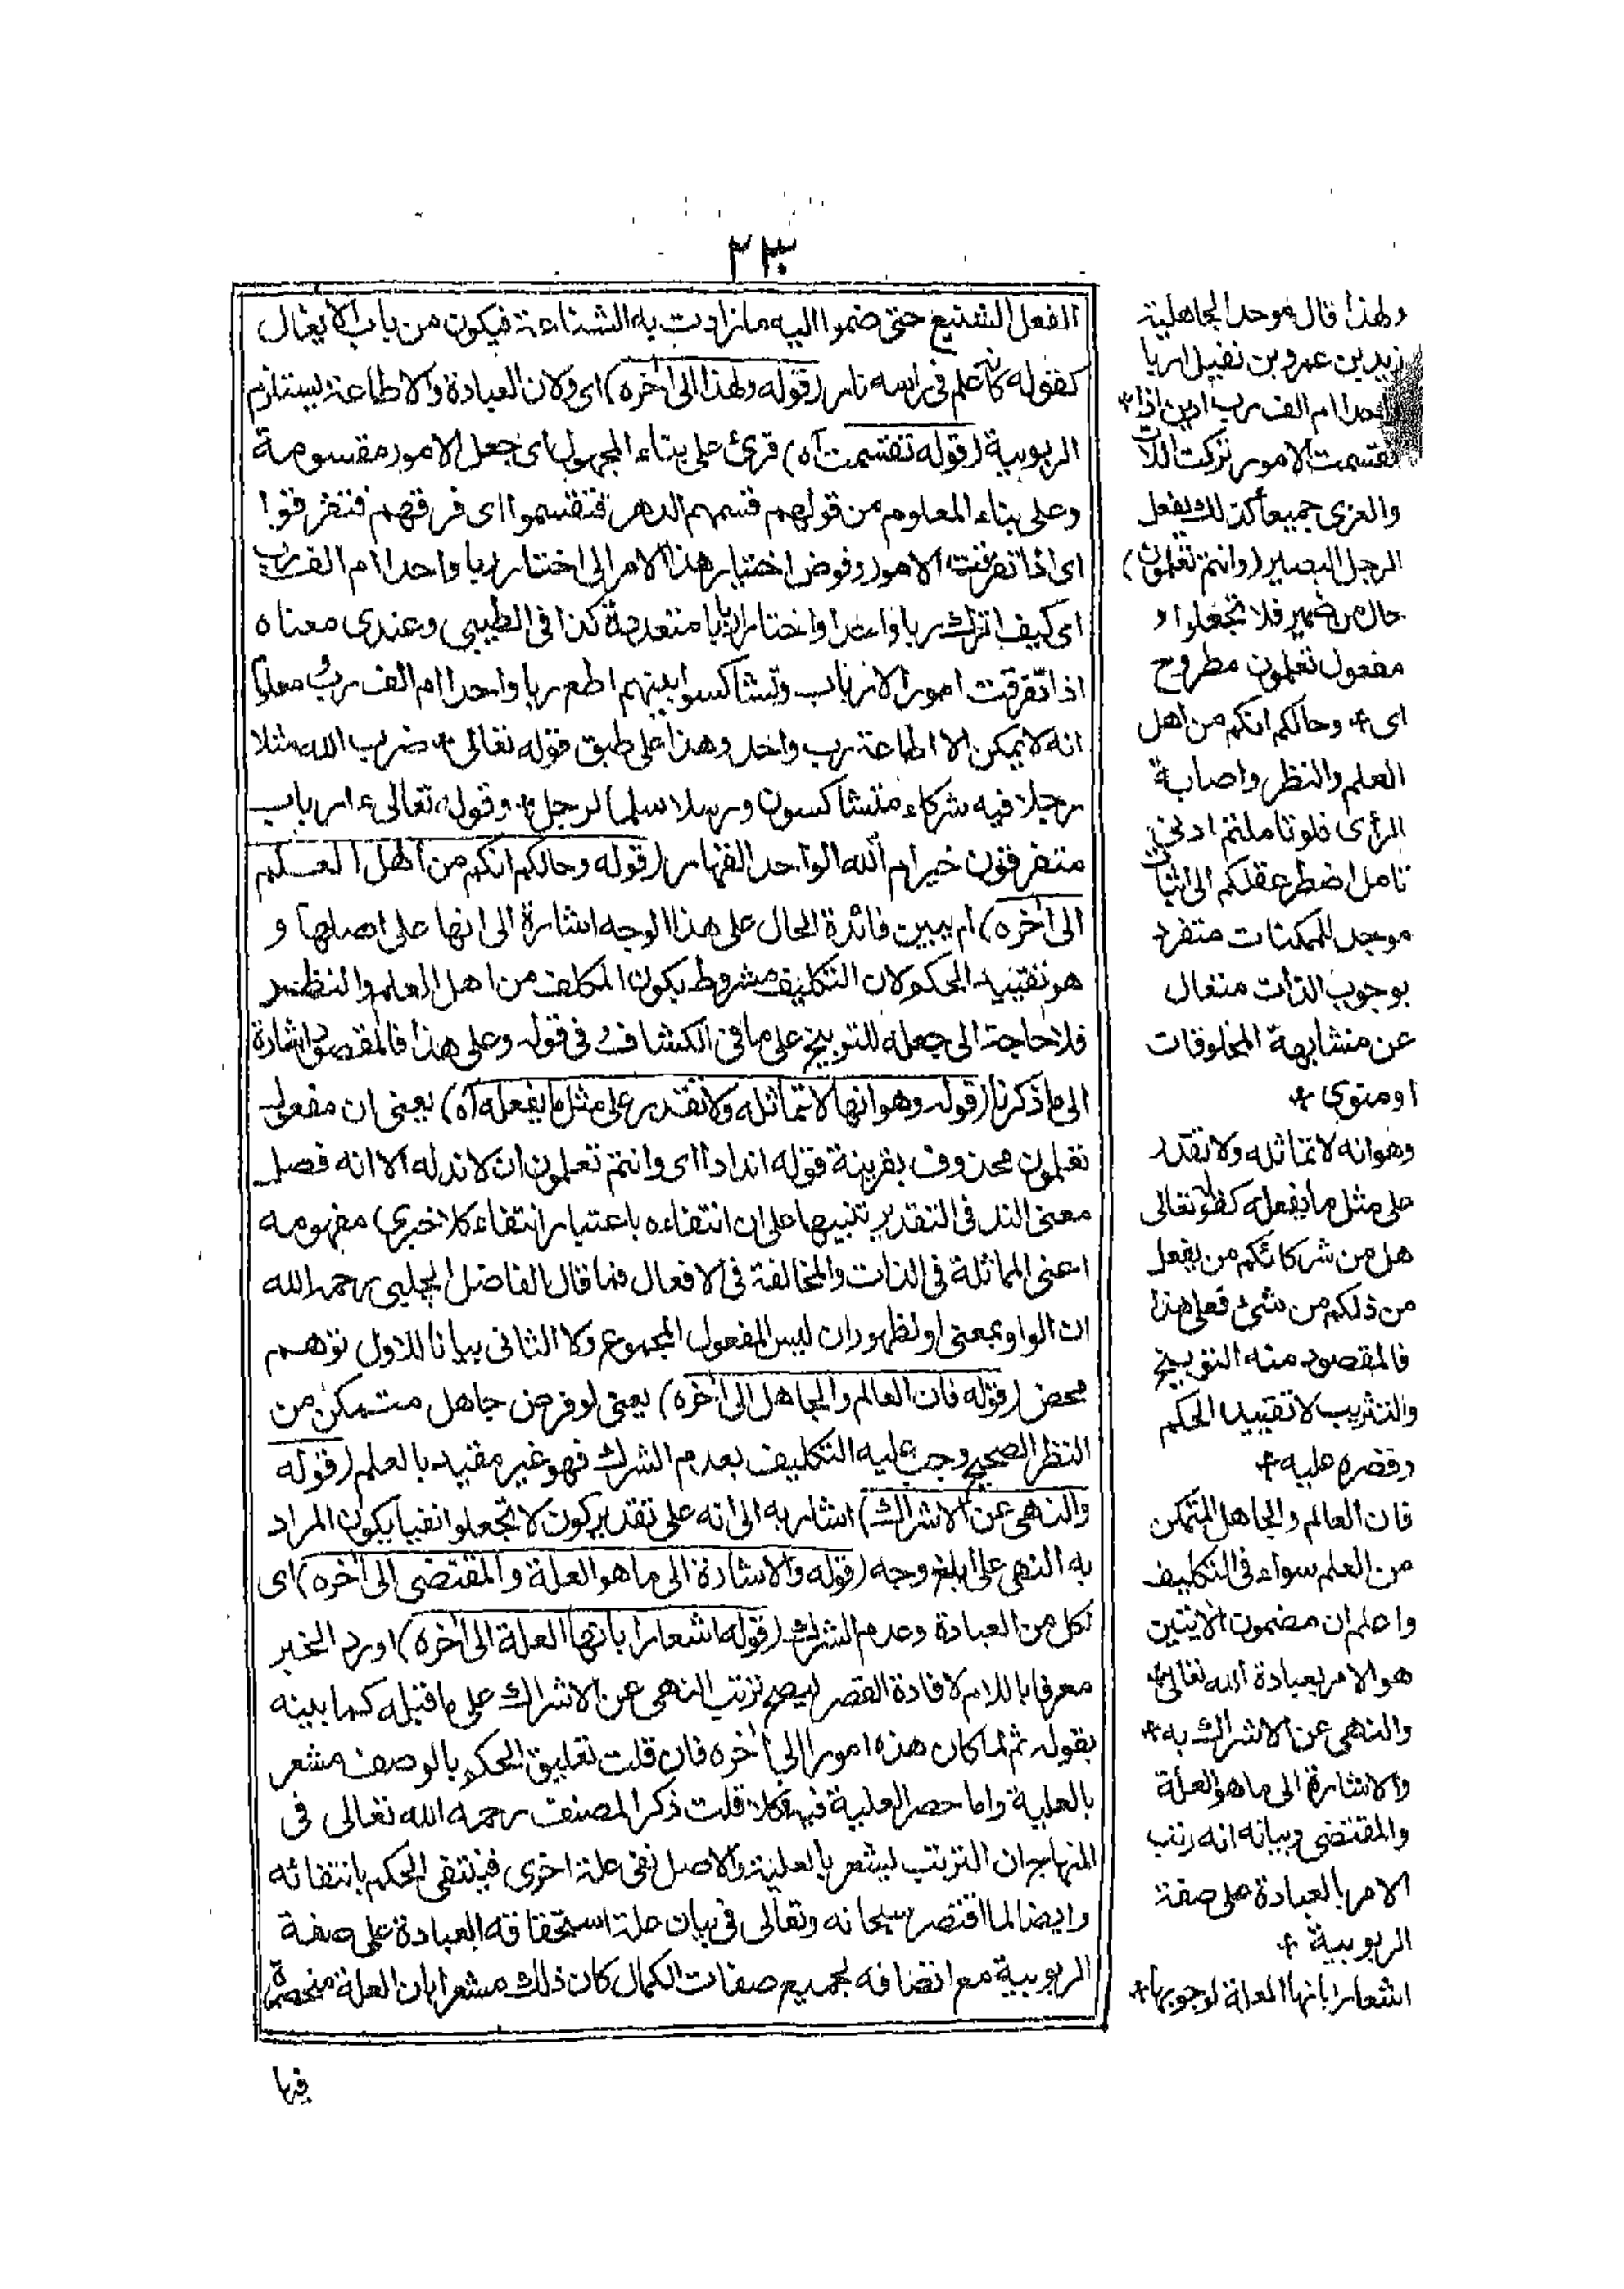 ٢٣٠
الفعل الشنيع حتى ضموا اليه ما زادت به الشناعة فيكون من باب الايغال
كقوله كانه علم فى راسه نار (قوله ولهذا الى آخره) اى ولان العبادة والاطاعة يستلزم
الربوبية (قوله تقسمت آه) قرئ على بناء المجهول اى جعل الامور مقسومة
وعلى بناء المعلوم من قولهم قسمهم الدهر فتقسموا اى فرقهم فتفرقوا
اى اذا تفرقت الامور وفوض اختيار هذا الامر الى اختار ربا واحدا ام الف رب
اى كيف اترك ربا واحدا واختار اربابا متعددة كذا فى الطيبى وعندى معناه
اذا تفرقت امور الارباب وتشاكسوا بينهم اطع ربا واحدا ام الف رب معلوما
انه لا يمكن الا اطاعة رب واحد وهذا على طبق قوله تعالى * ضرب الله مثلا
رجلا فيه شركاء متشاكسون ورجلا سلما لرجل * وقوله تعالى ءارباب
متفرقون خير ام الله الواحد القهار (قوله وحالكم انكم من اهل العلم
الى آخره) لم يبين فائدة الحال على هذا الوجه اشارة الى انها على اصلها و
هو تقييد الحكم لان التكليف مشروط بكون المكلف من اهل العلم والنظر
فلا حاجة الى جعله للتوبيخ على ما فى الكشاف وفى قوله وعلى هذا فالمقصود اشارة
الى ما ذكرنا (قوله وهو انها لا تماثله ولا تقدر على مثل ما يفعله آه) يعنى ان مفعول
تعلمون محذوف بقرينة قوله اندادا اى وانتم تعلمون ان لا ند له الا انه فصل
معنى الند فى التقدير تنبيها على ان انتفاءه باعتبار انتفاء كلا جزئى مفهومه
اعنى المماثلة فى الذات والمخالفة فى الافعال فما قال الفاضل الچلبى رحمه الله
ان الواو بمعنى او لظهور ان ليس المفعول المجموع ولا الثانى بيانا للاول توهم
محض (قوله فان العالم والجاهل الى آخره) يعنى لو فرض جاهل متمكن من
النظر الصحيح وجب عليه التكليف بعدم الشرك فهو غير مقيد بالعلم (قوله
والنهى عن الاشراك) اشار به الى انه على تقدير كون لا تجعلوا نفيا يكون المراد
به النهى على ابلغ وجه (قوله والاشارة الى ما هو العلة والمقتضى الى آخره) اى
لكل من العبادة وعدم الشرك (قوله اشعارا بانها العلة الى آخره) اورد الخبر
معرفا باللام لافادة القصر ليصح ترتب النهى عن الاشراك على ما قبله كما بينه
بقوله ثم لما كان هذه امورا الى آخره فان قلت تعليق الحكم بالوصف مشعر
بالعلية واما حصر العلية فيه فلا قلت ذكر المصنف رحمه الله تعالى فى
المنهاج ان الترتب ليشعر بالعلية والاصل نفى علة اخرى فينتفى الحكم بانتفائه
وايضا لما اقتصر سبحانه وتعالى فى بيان علة استحقاقه العبادة على صفة
الربوبية مع اتصافه بجميع صفات الكمال كان ذلك مشعرا بان العلة منحصرة
فيها
ولهذا قال موحد الجاهلية
زيد بن عمرو بن نفيل اربا
واحدا ام الف رب ادين اذا *
تقسمت الامور تركت اللات
والعزى جميعا كذلك يفعل
الرجل البصير (وانتم تعلمون)
حال من ضمير فلا تجعلوا و
مفعول تعلمون مطروح
اى * وحالكم انكم من اهل
العلم والنظر واصابة
الرأى فلو تاملتم ادنى
تامل اضطر عقلكم الى اثبات
موجد للممكنات متفرد
بوجوب الذات متعال
عن مشابهة المخلوقات
او منوى *
وهو انه لا تماثله ولا تقدر
على مثل ما يفعله كقوله تعالى
هل من شركائكم من يفعل
من ذلكم من شىء فعلى هذا
فالمقصود منه التوبيخ
والتثريب لا تقييد الحكم
وقصره عليه *
فان العالم والجاهل المتمكن
من العلم سواء فى التكليف
واعلم ان مضمون الآيتين
هو الامر بعبادة الله تعالى *
والنهى عن الاشراك به *
والاشارة الى ما هو العلة
والمقتضى وبيانه انه رتب
الامر بالعبادة على صفة
الربوبية *
اشعارا بانها العلة لوجوبها *